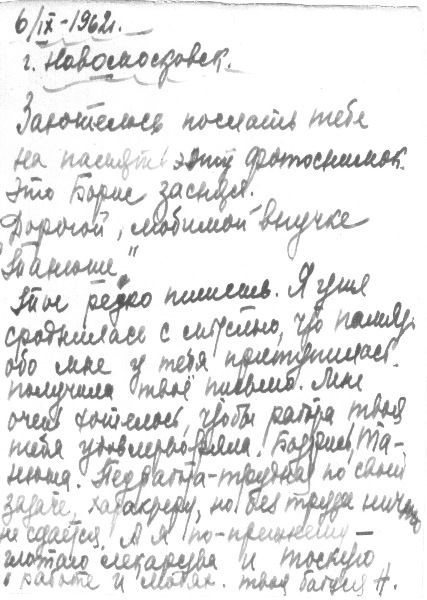 6/IX-1962г.
г. Новомосковск.
Захотелось послать тебе
на память этот фотоснимок.
Это Борис заснял.
Дорогой, любимой внучке
"Танюше"
Ты редко пишешь. Я уже
сроднилась с мыслью, что память
обо мне у тебя притупилась.
Получила твоё письмо. Мне
очень хотелось, чтобы работа твоя
тебя удовлетворяла. Бодрись, Та-
нюша. Педработа-трудная по своей
задаче, характеру, но без труда ничто
не сдаётся. А я по-прежнему —
глотаю лекарства и тоскую
о работе и . твоя бабуся Н.